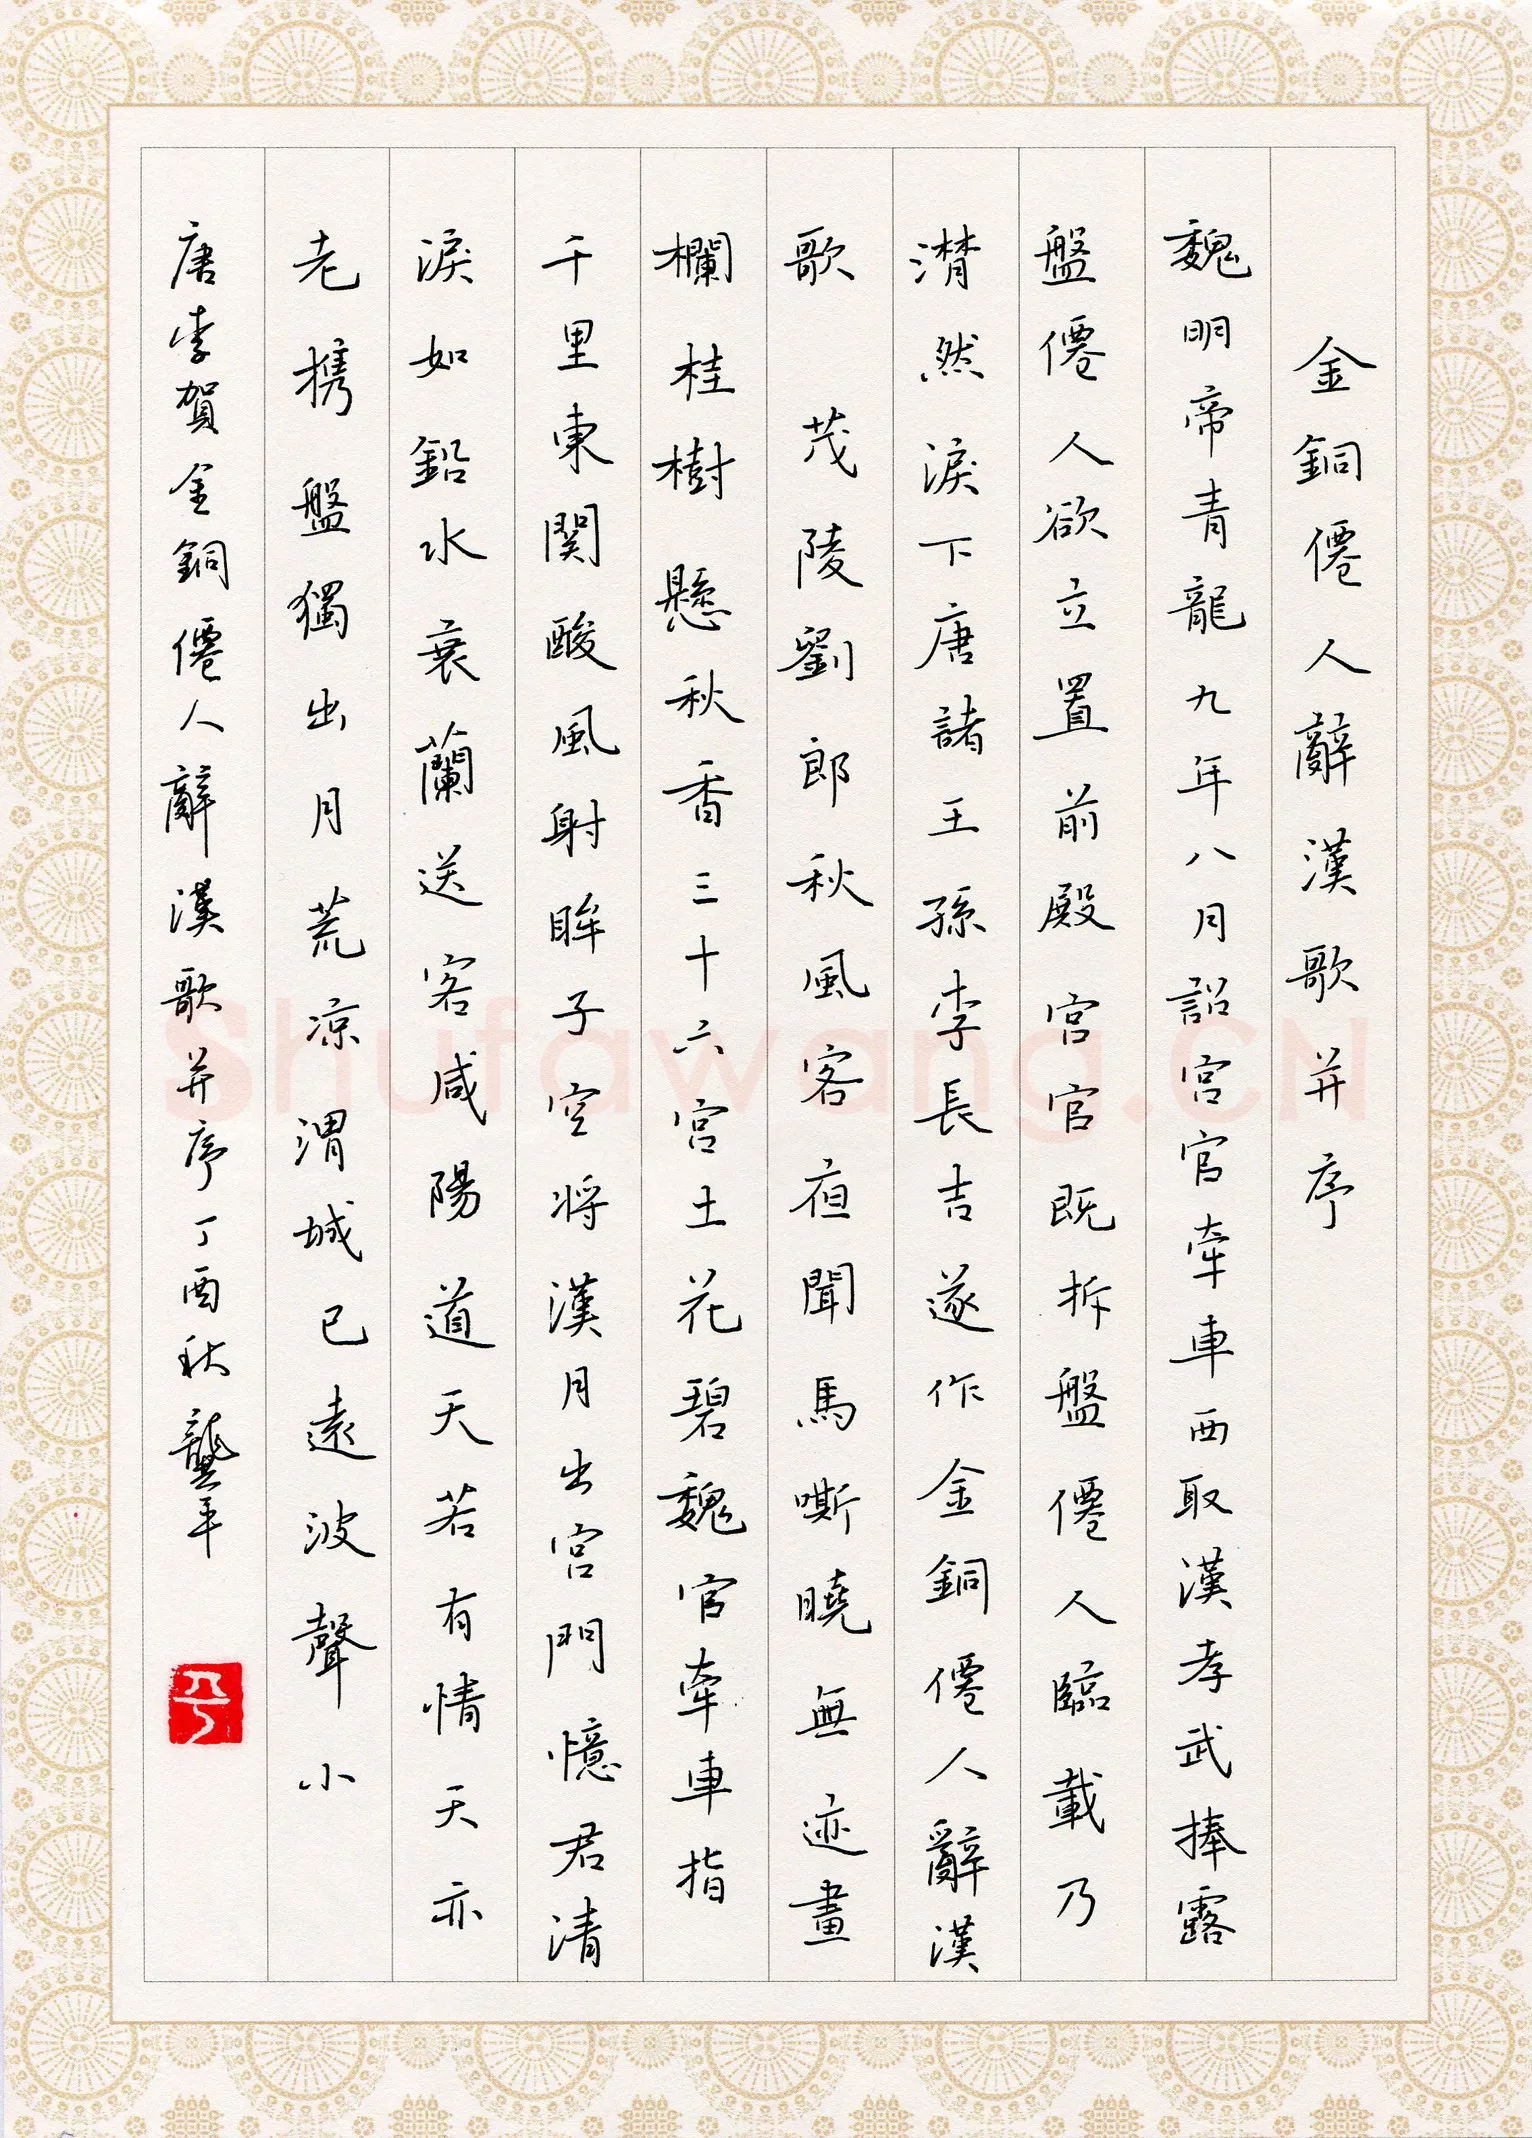 金銅僊人辭漢歌并序
魏明帝青龍九年八月詔宮官牽車西取漢孝武捧露
盤僊人欲立置前殿宮官既拆盤僊人臨載乃
潸然淚下唐諸王孫李長吉遂作金銅僊人辭漢
歌 茂陵劉郎秋風客夜聞馬嘶曉無迹畫
欄桂樹懸秋香三十六宮土花碧魏官牽車指
千里東関酸風射眸子空将漢月出宮門憶君清
淚如鉛水衰蘭送客咸陽道天若有情天亦
老携盤獨出月荒凉渭城已遠波聲小
唐李賀金銅僊人辭漢歌并序丁酉秋龔平
平
Shufawang.CN